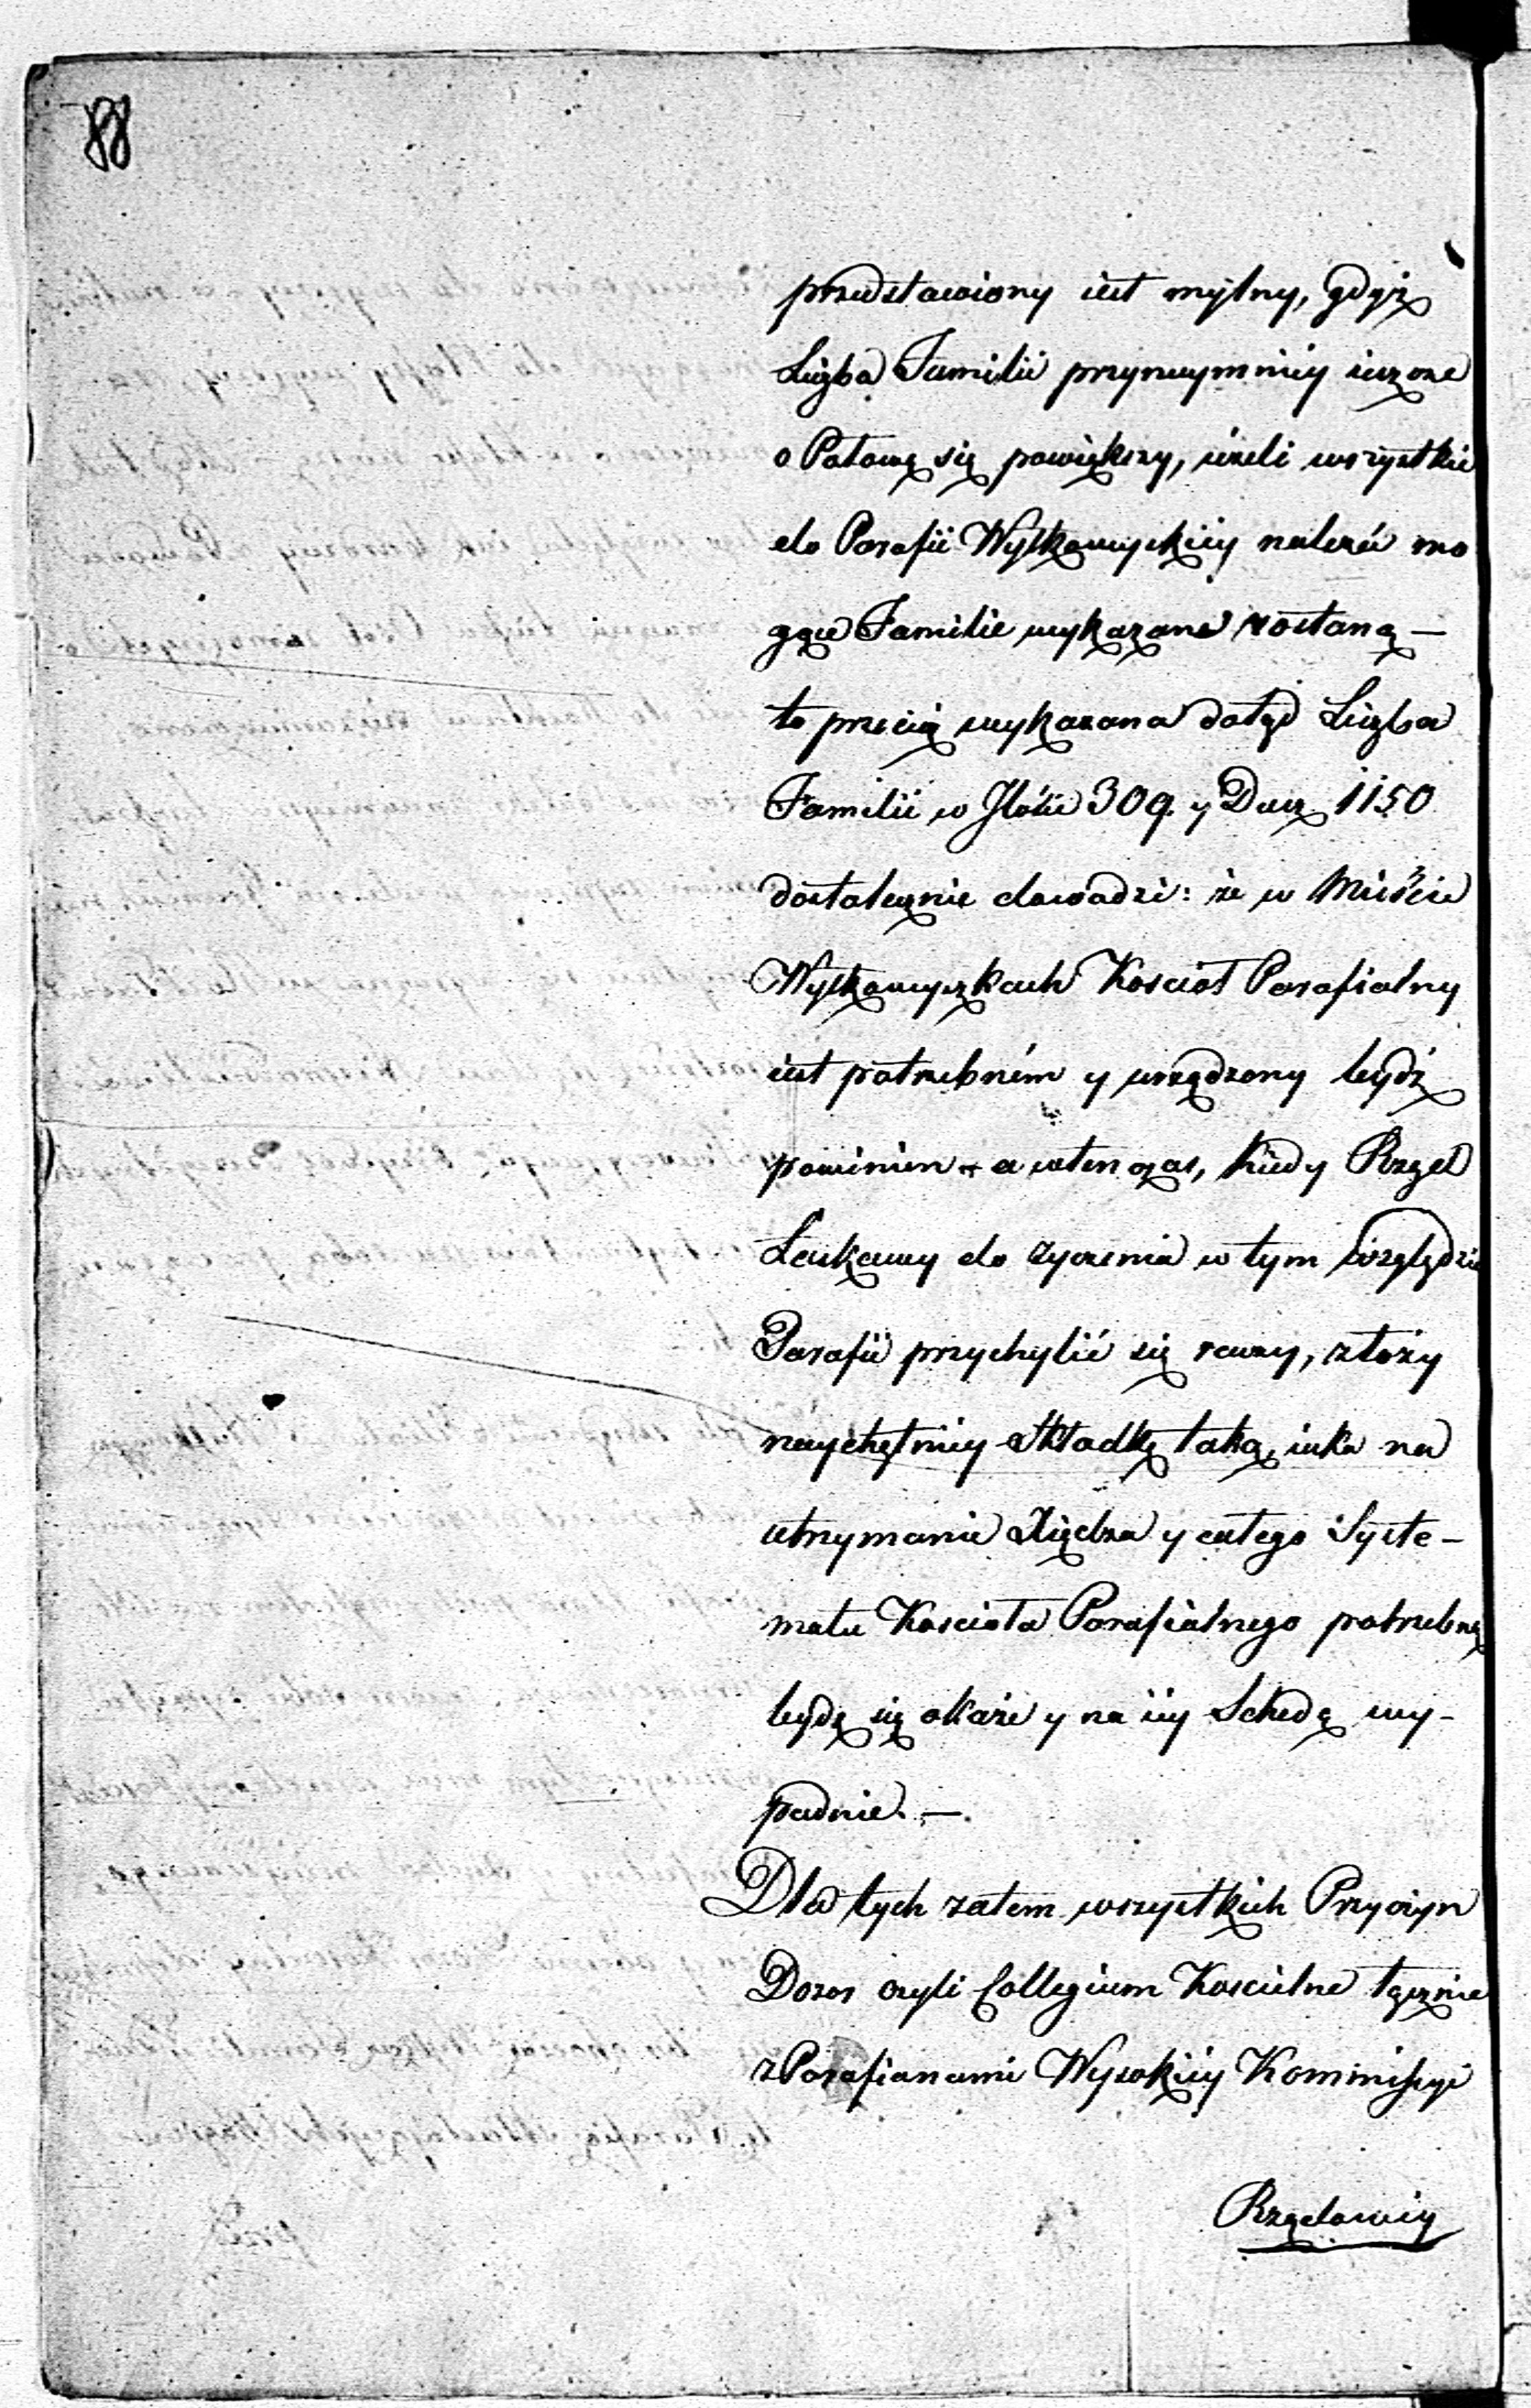 88
przedstawiony iest mylny, gdyż
Liczba Familii przynaymniéy ieszcze
o Połowę się powiększy, ieżeli wszystkie
do Parafii Wyłkowyskiéy należeć mo
gące Familie wykazane zostaną —
to przecię wykazana dotąd Liczba
Familii w Ilości 309. y Dusz 1150
dostatecznie dowodzi: że w Mieście
Wyłkowyszkach Kościoł Parafialny
iest potrzebném y urządzony bydź
powinien – a wtenczas, kiedy Rząd
Łaskawy do życzenia w tym względzie
Parafii przychylić się raczy, złoży
naychętniéy składkę taką, iaka na
utrzymanie Xiędza y całego Syste-
matu Kościoła Parafialnego potrzebną
bydź się okaże y na iéy Schedę wy-
padnie. —.
Dla tych zatem wszystkich Przyczyn
Dozor czyli Collegium Kościelne łącznie
z Parafianami Wysokiéy Kommissyi
Rządowéy